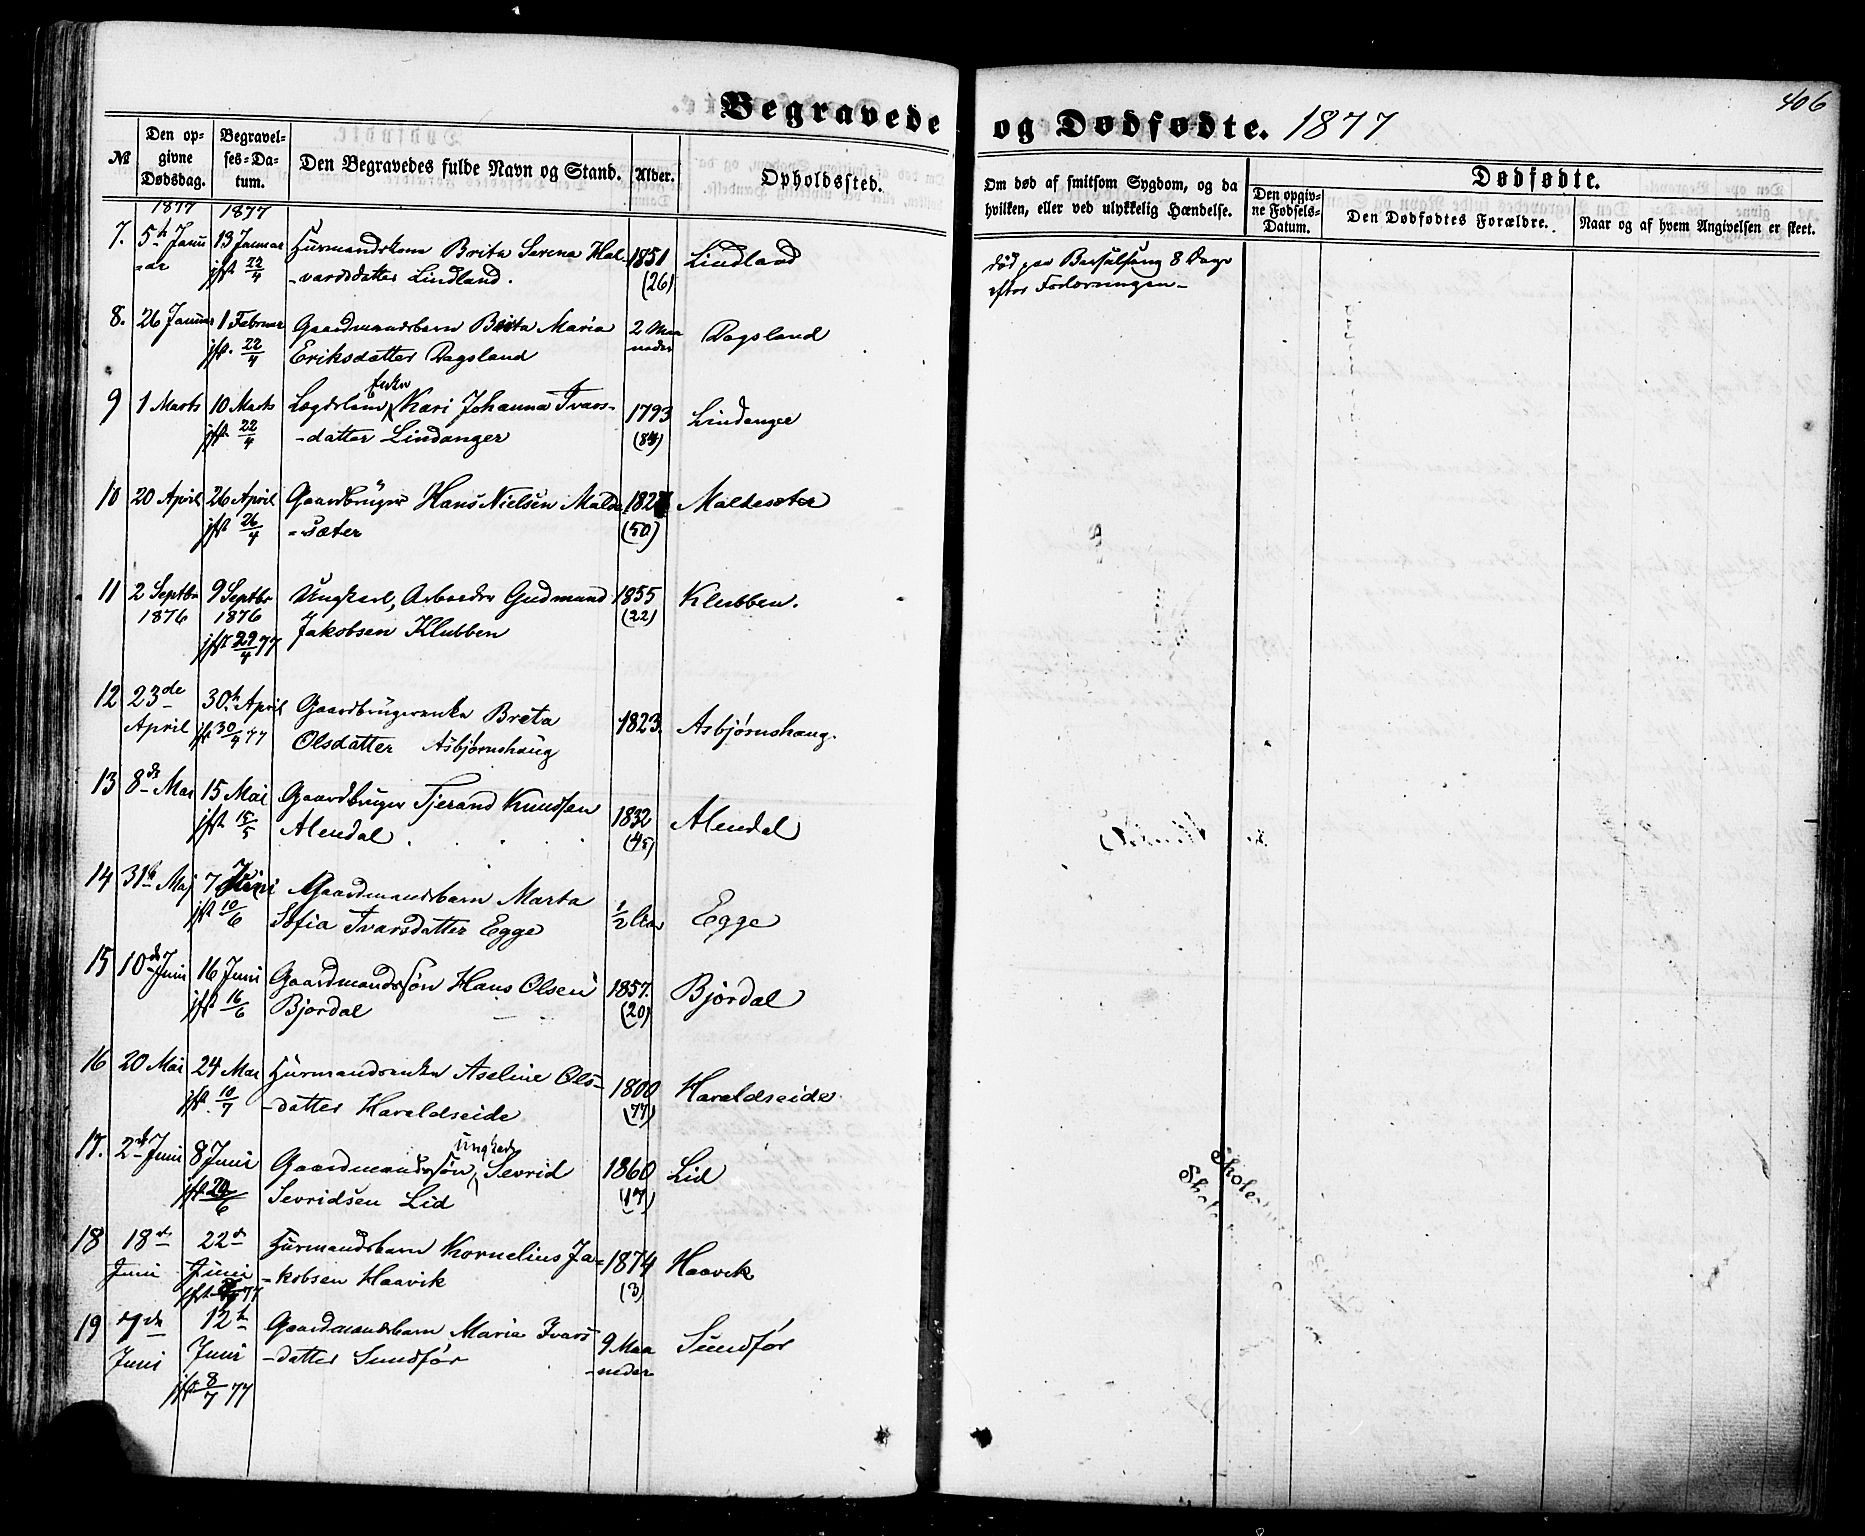 406
Begravede og Dødfødte. 1877
№
Den opgivne Dødsdag.
Begravelses-Datum.
Den Begravedes fulde Navn og Stand.
Alder.
Opholdssted.
Om død af smitsom Sygdom, og da hvilken, eller ved ulykkelig Hændelse.
Dødfødte.
Den opgivne Fødsels-Datum.
Den Dødfødtes Forældre.
Naar og af hvem Angivelsen er skeet.
1877 1877
7. 5te Janu 13 Januar Husmandskone Brita Serina Hal- 1851 Lindland død paa Barselseng 8 Dage
-ar jfst 22/4 -vardsdatter Lindland. (26) efter Forløsningen-
8. 26 Januar 1 Februar Gaardmandsbarn Brita Maria 2 Maa Dagsland
jfst. 22/4 Eriksdatter Dagsland neder
9 1 Marts 10 Marts Lægdslem enke Kari Johanna Ivars- 1793 Lindanger
jfst. 22/4 -datter Lindanger (84)
10 20 April 26 April Gaardbruger Hans Nielsen Malde 1827 Maldesæter
jfst 26/4 -sæter (50)
11 2 Septbr 9 Septbr Ungkarl, Arbeider Gudmund 1855 Klubben.
1876 1876 Jakobsen Klubben (22)
jfst 29/4 77
12 23de 30te April Gaardbrugerenke Breta 1823. Asbjørnshaug.
April jfst 30/4 77 Olsdatter Asbjørnshaug
13 8de Mai 15 Mai Gaardbruger Tjerand Knudsen 1832 Alendal
jfst 15/5 Alendal (45)
14 31te Maj 7 Juni Gaardmandsbarn Marta 1/2 Aar Egge
jfst 10/6 Sofia Ivarsdatter Egge
15 10de Juni 16 Juni Gaardmandssøn Hans Olsen 1857. Bjordal
jfst 16/6 Bjordal (20)
16 20 Mai 24 Mai Husmandsenke Aseline Ols- 1800 Haraldseide
jfst. 10/7 -datter Haraldseide (77)
17. 2de Juni 8 Juni Gaardmandssøn, ungkarl Sevrid 1860 Lid
jfst 24/6 Sevridsen Lid (17)
18 18de 22de Husmandsbarn Kornelius Ja- 1874 Haavik
Juni Juni -kobsen Haavik (3)
jfst 77
19 7de 12te Gaardmandsbarn Maria Ivars 9 Maa Sundfør
Juni Juni -datter Sundfør -neder
jfst 8/7 77